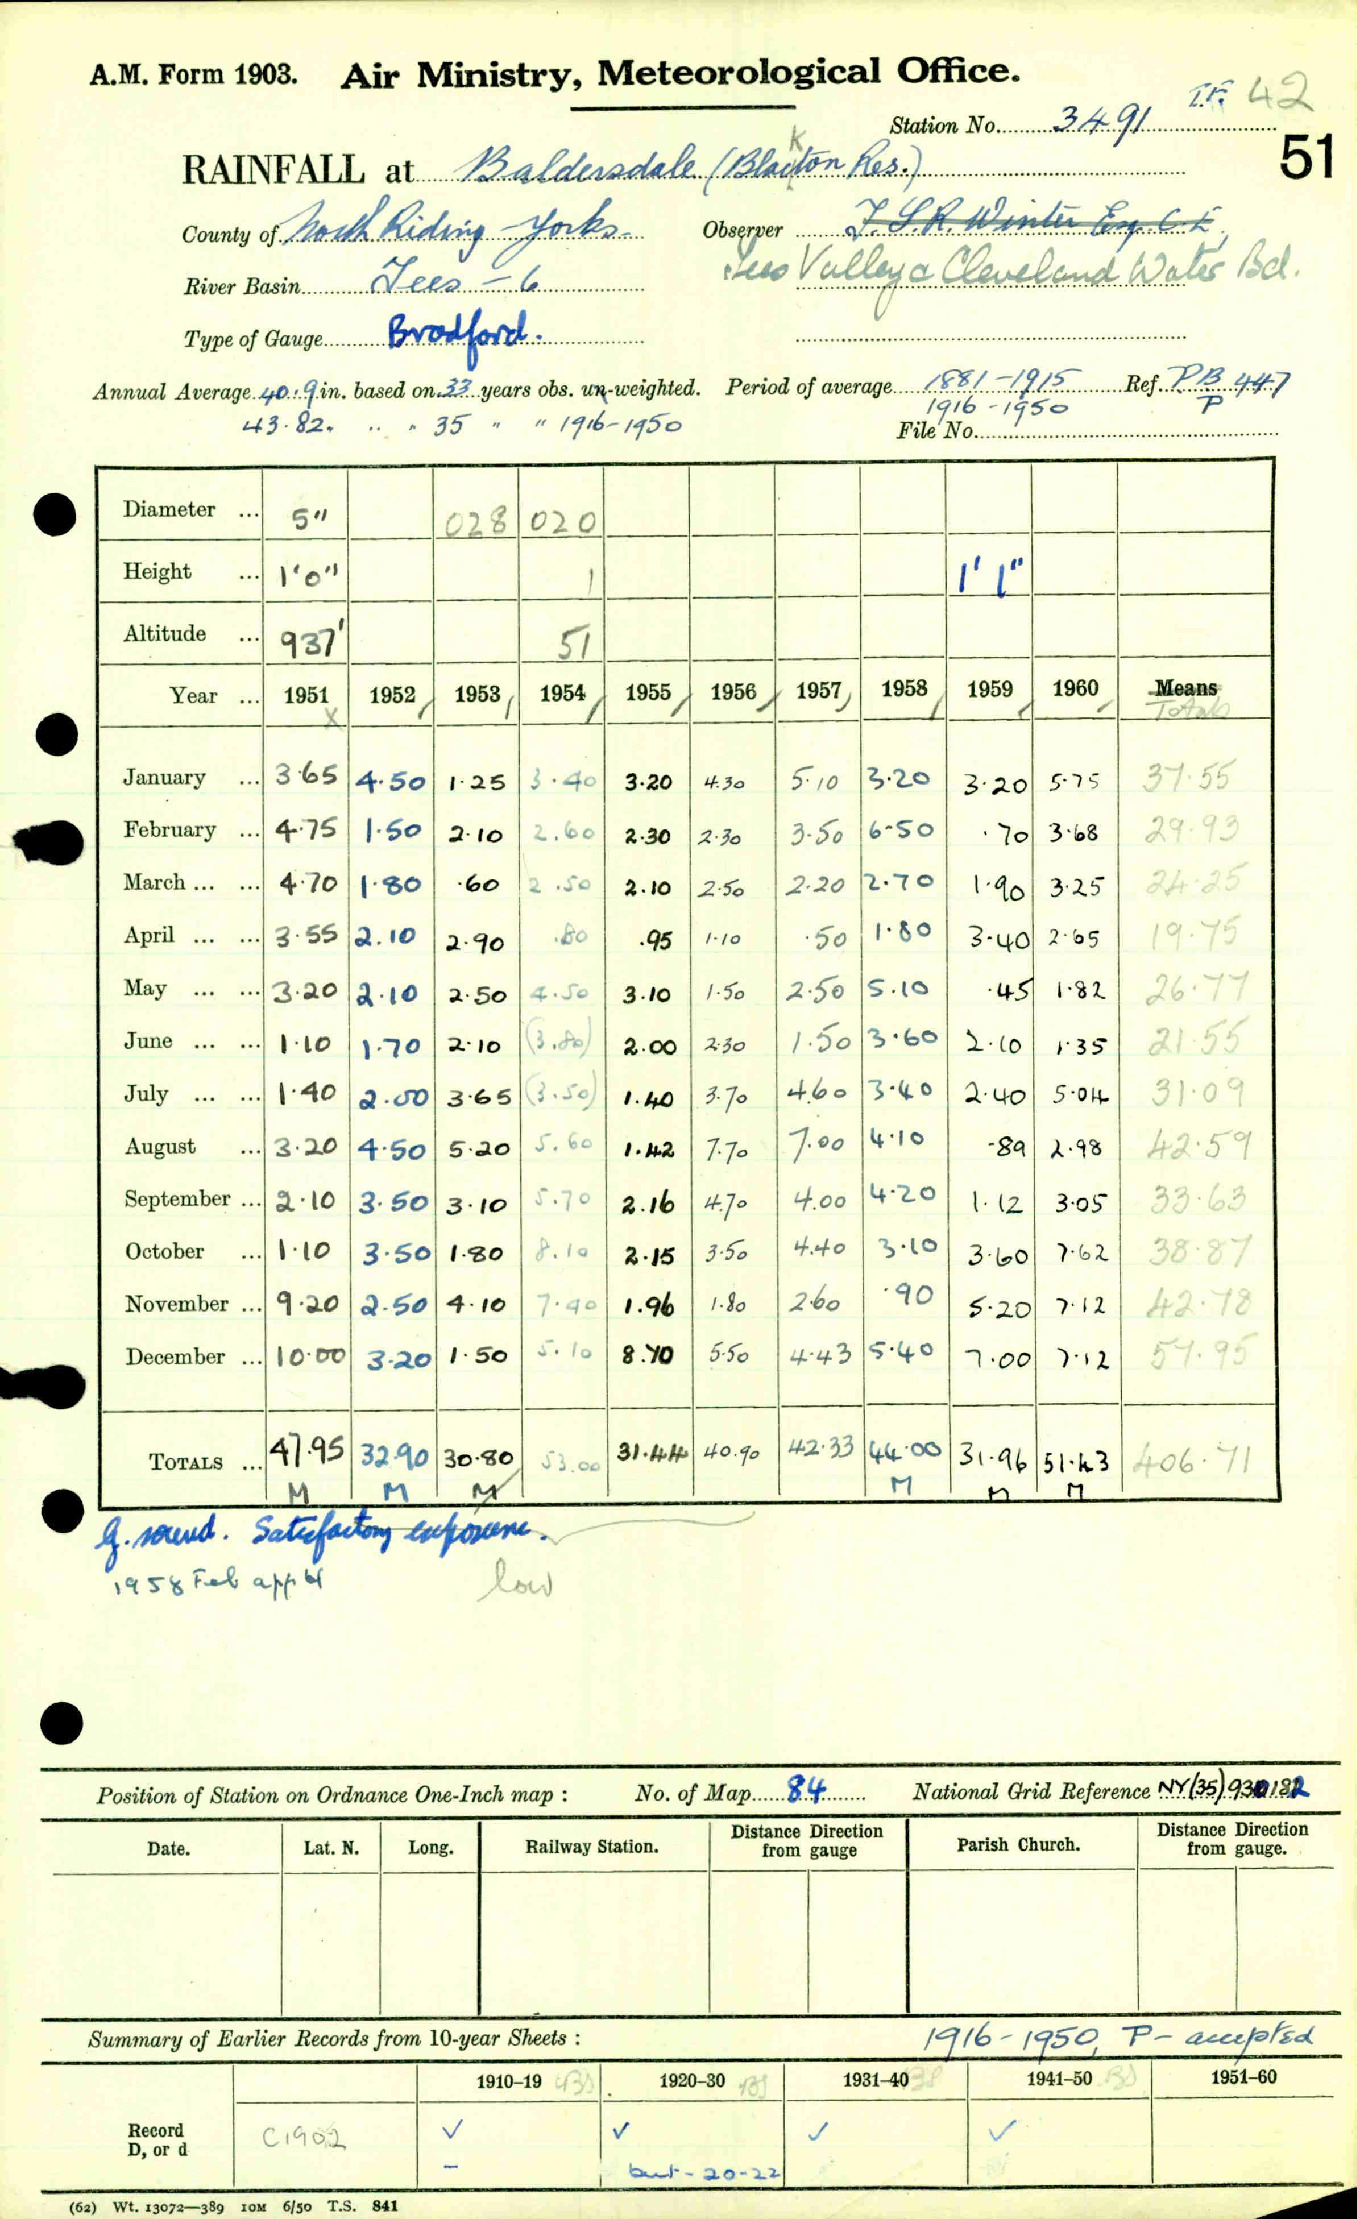 A.M. Form 1903. Air Ministry, Meteorological Office.
T.F. 42
Station No. 3491
51
RAINFALL at Baldersdale (Blackton Res.)
County of North Riding Yorks. Observer T.S.R. Winter Esq. C.E.
River Basin Tees - 6 Tees Valley & Cleveland Water Bd.
Type of Gauge Bradford.
Annual Average 40.9 in. based on 33 years obs. un-weighted. Period of average 1881-1915 Ref. PB 447
P
43.82. .. " 35 " " 1916-1950 1916-1950
File No.
Diameter ... 5" 028 020
Height ... 1'0" 1 1'1"
Altitude ... 937' 51
Year ... 1951 1952 1953 1954 1955 1956 1957 1958 1959 1960 Means
X Totals
January ... 3.65 4.50 1.25 3.40 3.20 4.30 5.10 3.20 3.20 5.75 37.55
February ... 4.75 1.50 2.10 2.60 2.30 2.30 3.50 6.50 .70 3.68 29.93
March ... ... 4.70 1.80 .60 2.50 2.10 2.50 2.20 2.70 1.90 3.25 24.25
April ... ... 3.55 2.10 2.90 .80 .95 1.10 .50 1.80 3.40 2.65 19.75
May ... ... 3.20 2.10 2.50 4.50 3.10 1.50 2.50 5.10 .45 1.82 26.77
June ... ... 1.10 1.70 2.10 (3.80) 2.00 2.30 1.50 3.60 2.10 1.35 21.55
July ... ... 1.40 2.00 3.65 (3.50) 1.40 3.70 4.60 3.40 2.40 5.04 31.09
August ... 3.20 4.50 5.20 5.60 1.42 7.70 7.00 4.10 .89 2.98 42.59
September ... 2.10 3.50 3.10 5.70 2.16 4.70 4.00 4.20 1.12 3.05 33.63
October ... 1.10 3.50 1.80 8.10 2.15 3.50 4.40 3.10 3.60 7.62 38.87
November ... 9.20 2.50 4.10 7.40 1.96 1.80 2.60 .90 5.20 7.12 42.78
December ... 10.00 3.20 1.50 5.10 8.70 5.50 4.43 5.40 7.00 7.12 57.95
TOTALS ... 47.95 32.90 30.80 53.00 31.44 40.90 42.33 44.00 31.96 51.43 406.71
M M M M M M
G. round. Satisfactory exposure.
1958 Feb app'd low
Position of Station on Ordnance One-Inch map : No. of Map 84 National Grid Reference NY(35)
Date. Lat. N. Long. Railway Station. Distance from gauge Direction Parish Church. Distance from gauge. Direction
Summary of Earlier Records from 10-year Sheets : 1916-1950, P - accepted
1910-19 1920-30 1931-40 1941-50 1951-60
Record D, or d C1902 ✓ ✓ ✓ ✓
– but - 20-22
(62) Wt. 13072—389 10M 6/50 T.S. 841